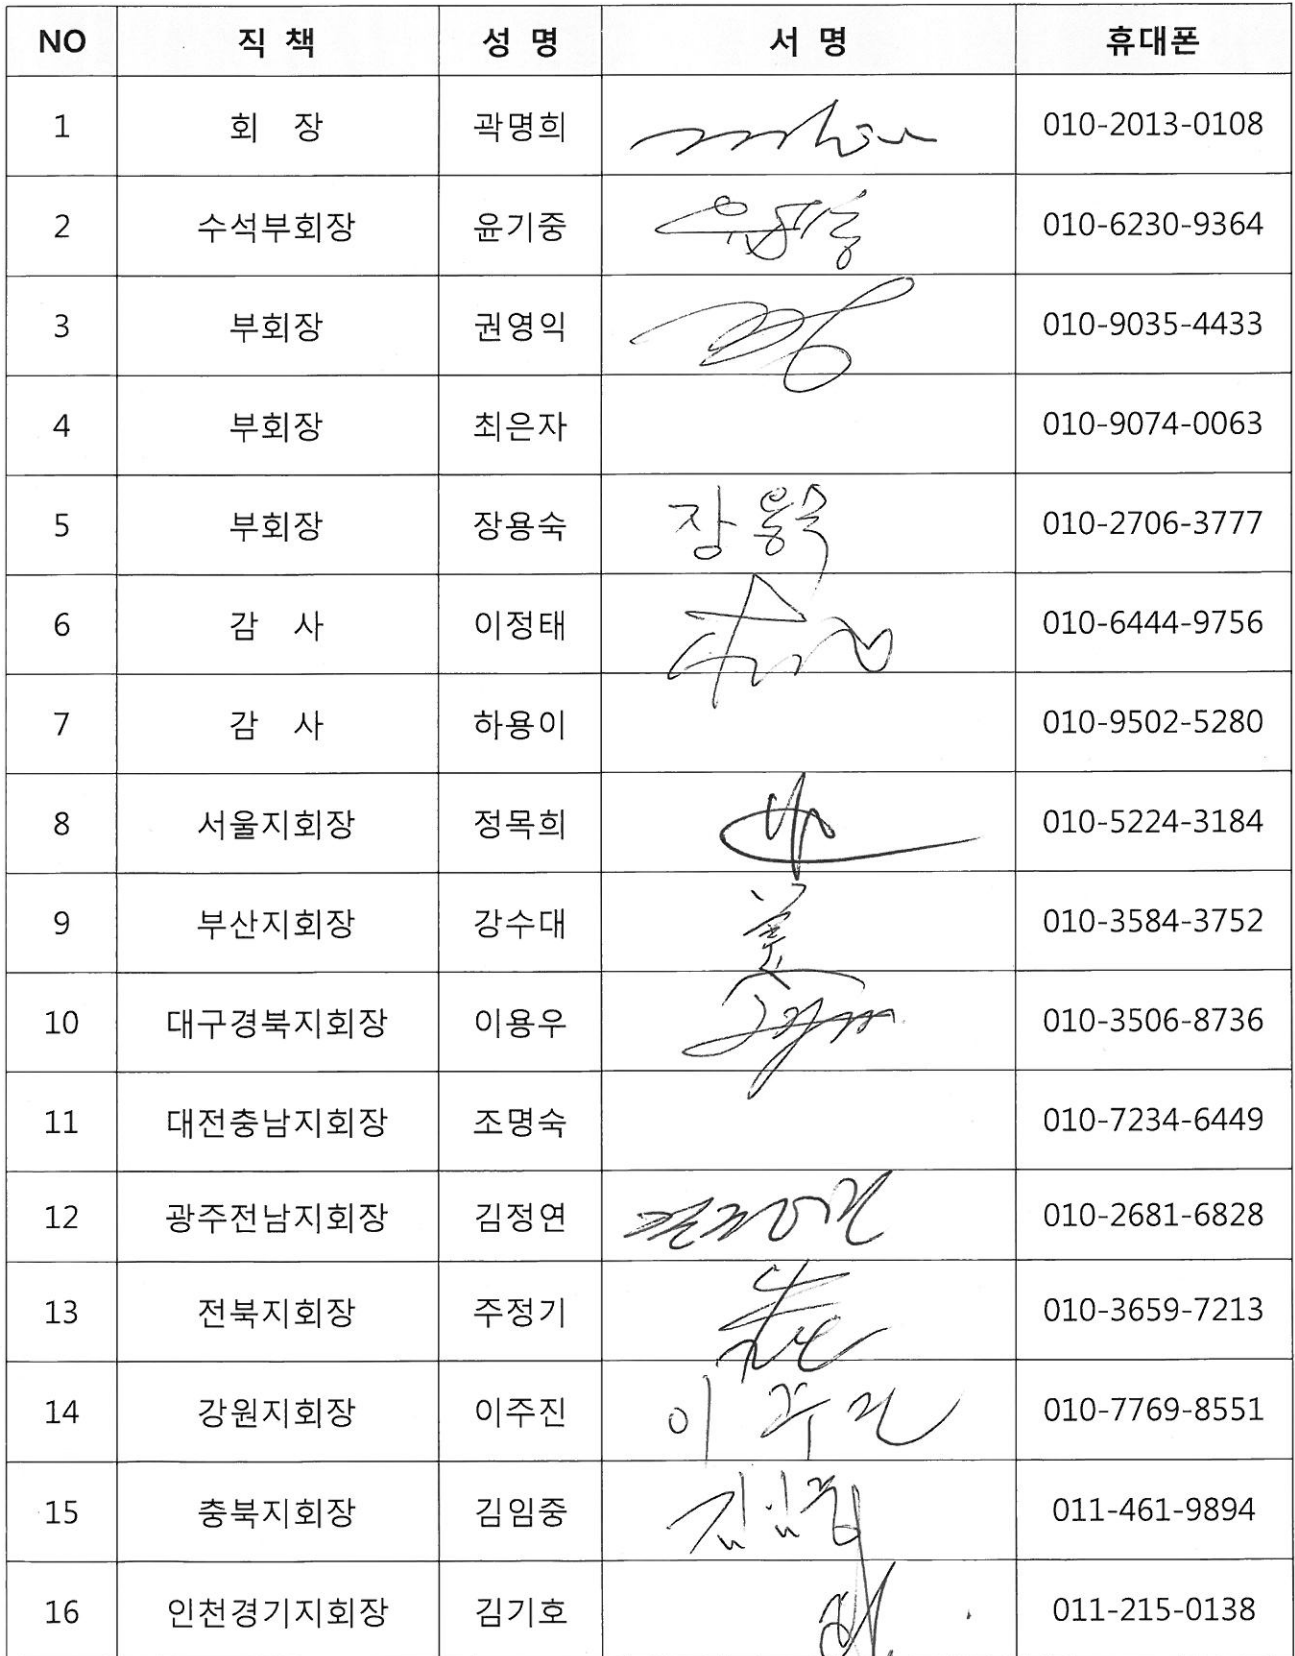 NO 직 책 성 명 서 명 휴대폰
1 회 장 곽명희 010-2013-0108
2 수석부회장 윤기중 010-6230-9364
3 부회장 권영익 010-9035-4433
4 부회장 최은자 010-9074-0063
5 부회장 장용숙 장용숙 010-2706-3777
6 감 사 이정태 010-6444-9756
7 감 사 하용이 010-9502-5280
8 서울지회장 정목희 010-5224-3184
9 부산지회장 강수대 010-3584-3752
10 대구경북지회장 이용우 010-3506-8736
11 대전충남지회장 조명숙 010-7234-6449
12 광주전남지회장 김정연 010-2681-6828
13 전북지회장 주정기 010-3659-7213
14 강원지회장 이주진 이주진 010-7769-8551
15 충북지회장 김임중 김임중 011-461-9894
16 인천경기지회장 김기호 011-215-0138